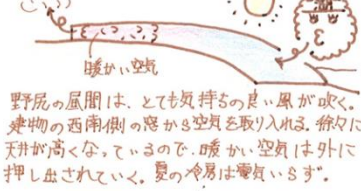 暖かい空気
野尻の昼間は、とても気持ちの良い風が吹く。
建物の西南側の窓から空気を取り入れる。徐々に
天井が高くなっているので、暖かい空気は外に
押し出されていく。夏の冷房は電気いらず。